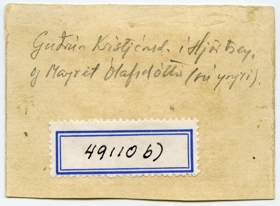 Guðrún Kristjánsd. í Hjörtsey,
og Magrét Ólafsdóttir (sú yngri).
49110 b)